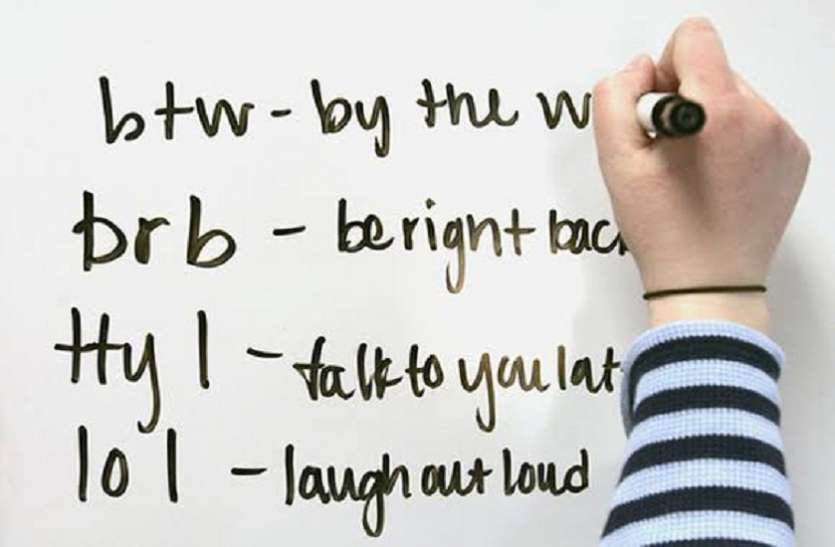 btw - by the w
brb - be right bac
ttyl - talk to you lat
lol - laugh out loud